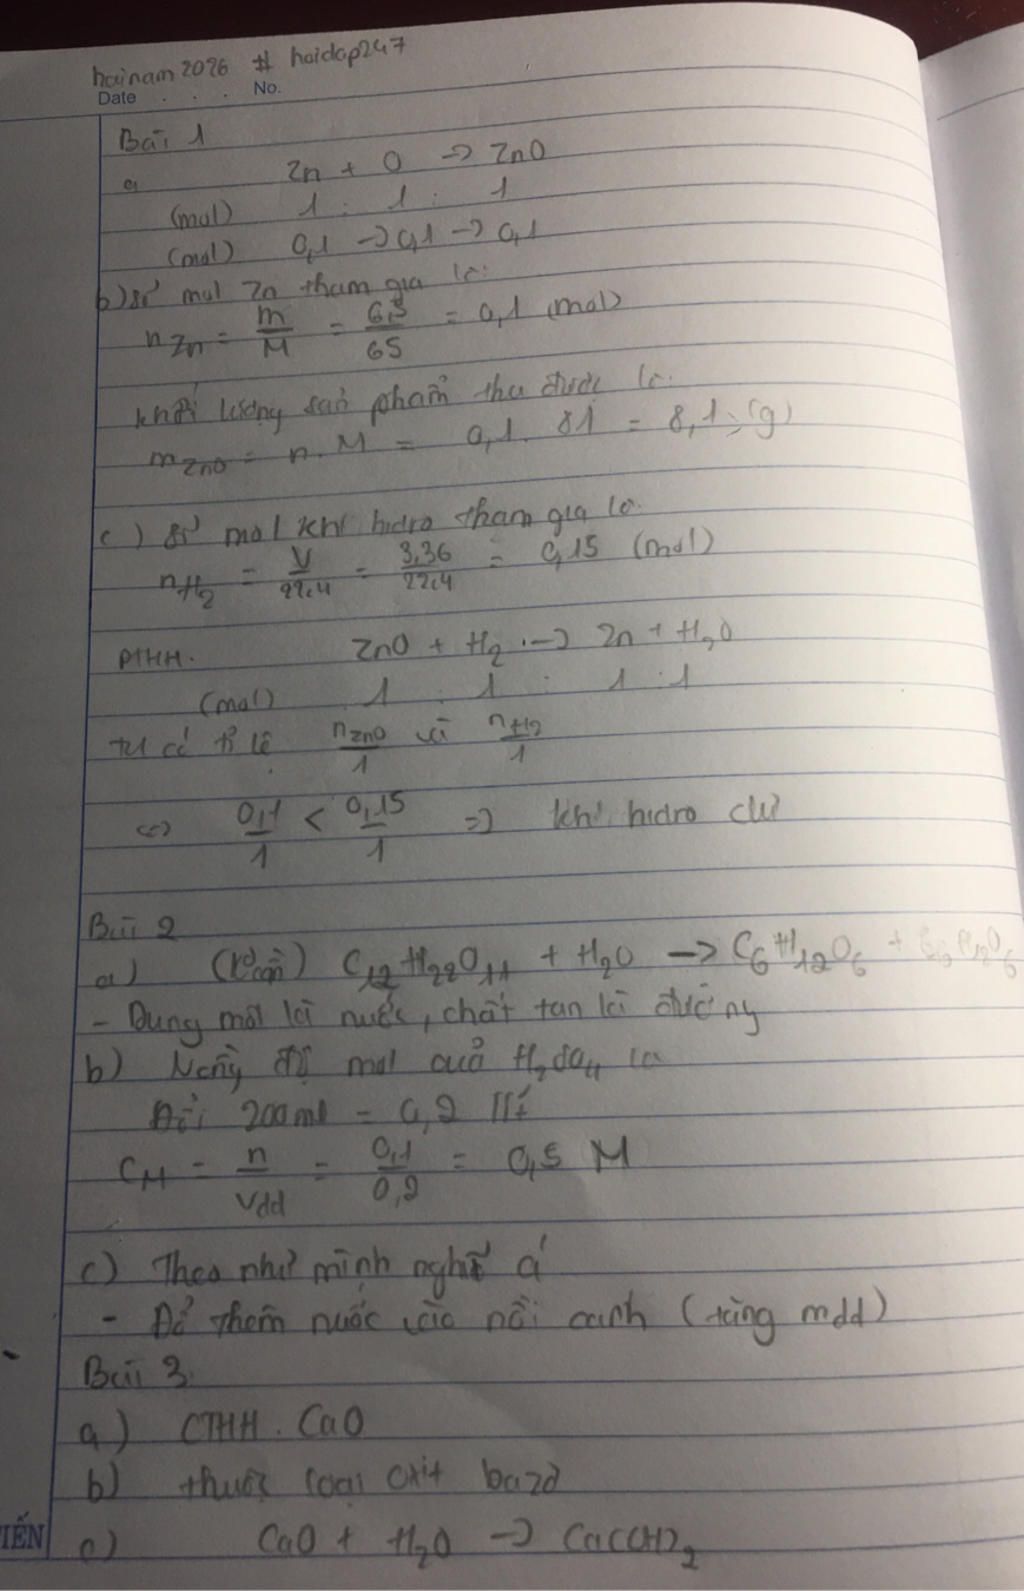 hainam2096 # hoidap247
Date No.
Bài 1
a Zn + O -> ZnO
(mol) 1 : 1 : 1
(mol) 0,1 -> 0,1 -> 0,1
b) số mol Zn tham gia là:
nZn = m/M = 6,5/65 = 0,1 (mol)
khối lượng sản phẩm thu được là.
mZnO = n.M = 0,1. 81 = 8,1 (g)
c) số mol khí hidro tham gia là.
nH2 = V/22,4 = 3,36/22,4 = 0,15 (mol)
PTHH. ZnO + H2 -> Zn + H2O
(mol) 1 : 1 : 1 : 1
ta có tỉ lệ nZnO/1 và nH2/1
<=> 0,1/1 < 0,15/1 => khí hidro dư
Bài 2
a) C12H22O11 + H2O -> C6H12O6 + C6H12O6
- Dung môi là nước, chất tan là đường
b) Nồng độ mol của H2SO4 là
Đổi 200ml = 0,2 lít
CM = n/Vdd = 0,1/0,2 = 0,5 M
c) Theo như mình nghĩ á
- Đổ thêm nước vào nồi canh (tăng mdd)
Bài 3.
a) CTHH. CaO
b) thuộc loại oxit bazơ
c) CaO + H2O -> Ca(OH)2
IẾN